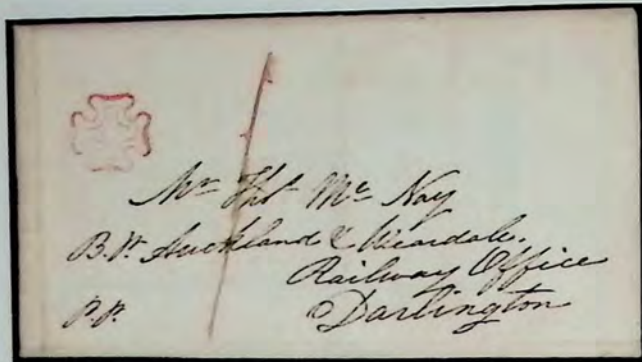 Mr Thos Mc Nay
B.p. Auckland & Weardale,
Railway Office
P.P. Darlington